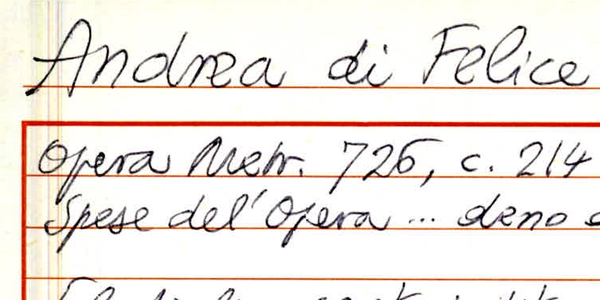 Andrea di Felice
Opera Metr. 726, c. 214
Spese del'Opera ... deno